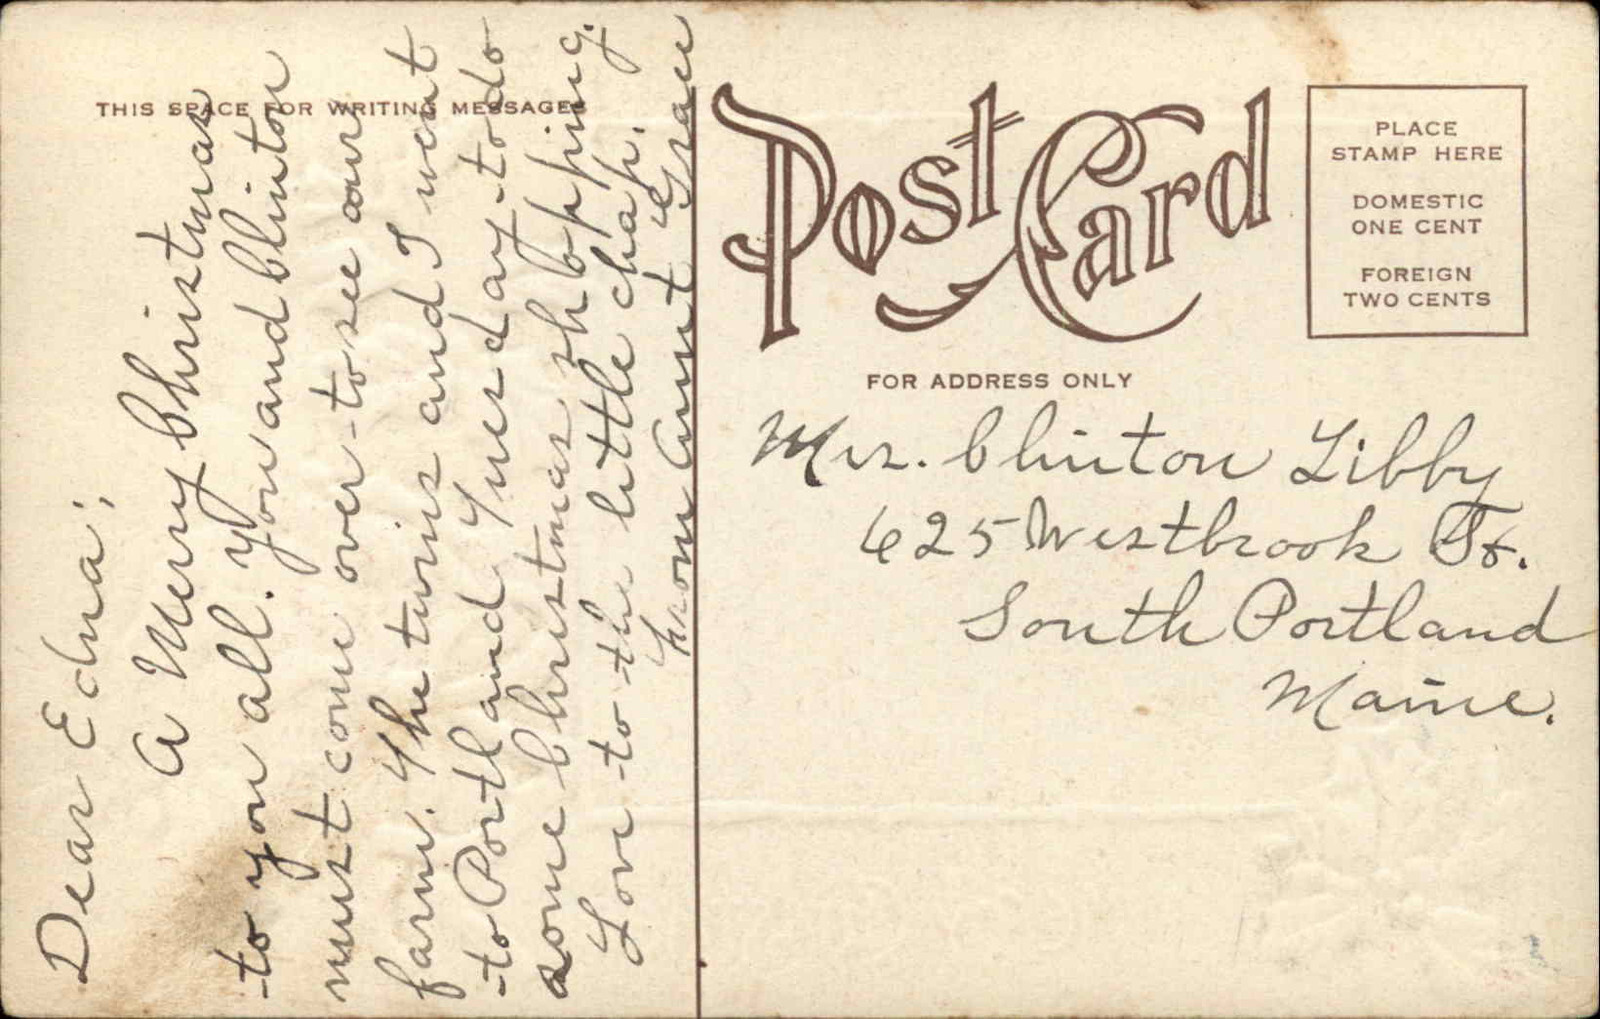 THIS SPACE FOR WRITING MESSAGES
Dear Edna;
A Merry Christmas
to you all. You and Clinton
must come over to see our
farm. The twins and I went
to Portland Tuesday to do
some Christmas shopping.
Love to the little chap.
From Aunt Grace
Post Card
PLACE
STAMP HERE
DOMESTIC
ONE CENT
FOREIGN
TWO CENTS
FOR ADDRESS ONLY
Mrs. Clinton Libby
625 Westbrook St.
South Portland
Maine.